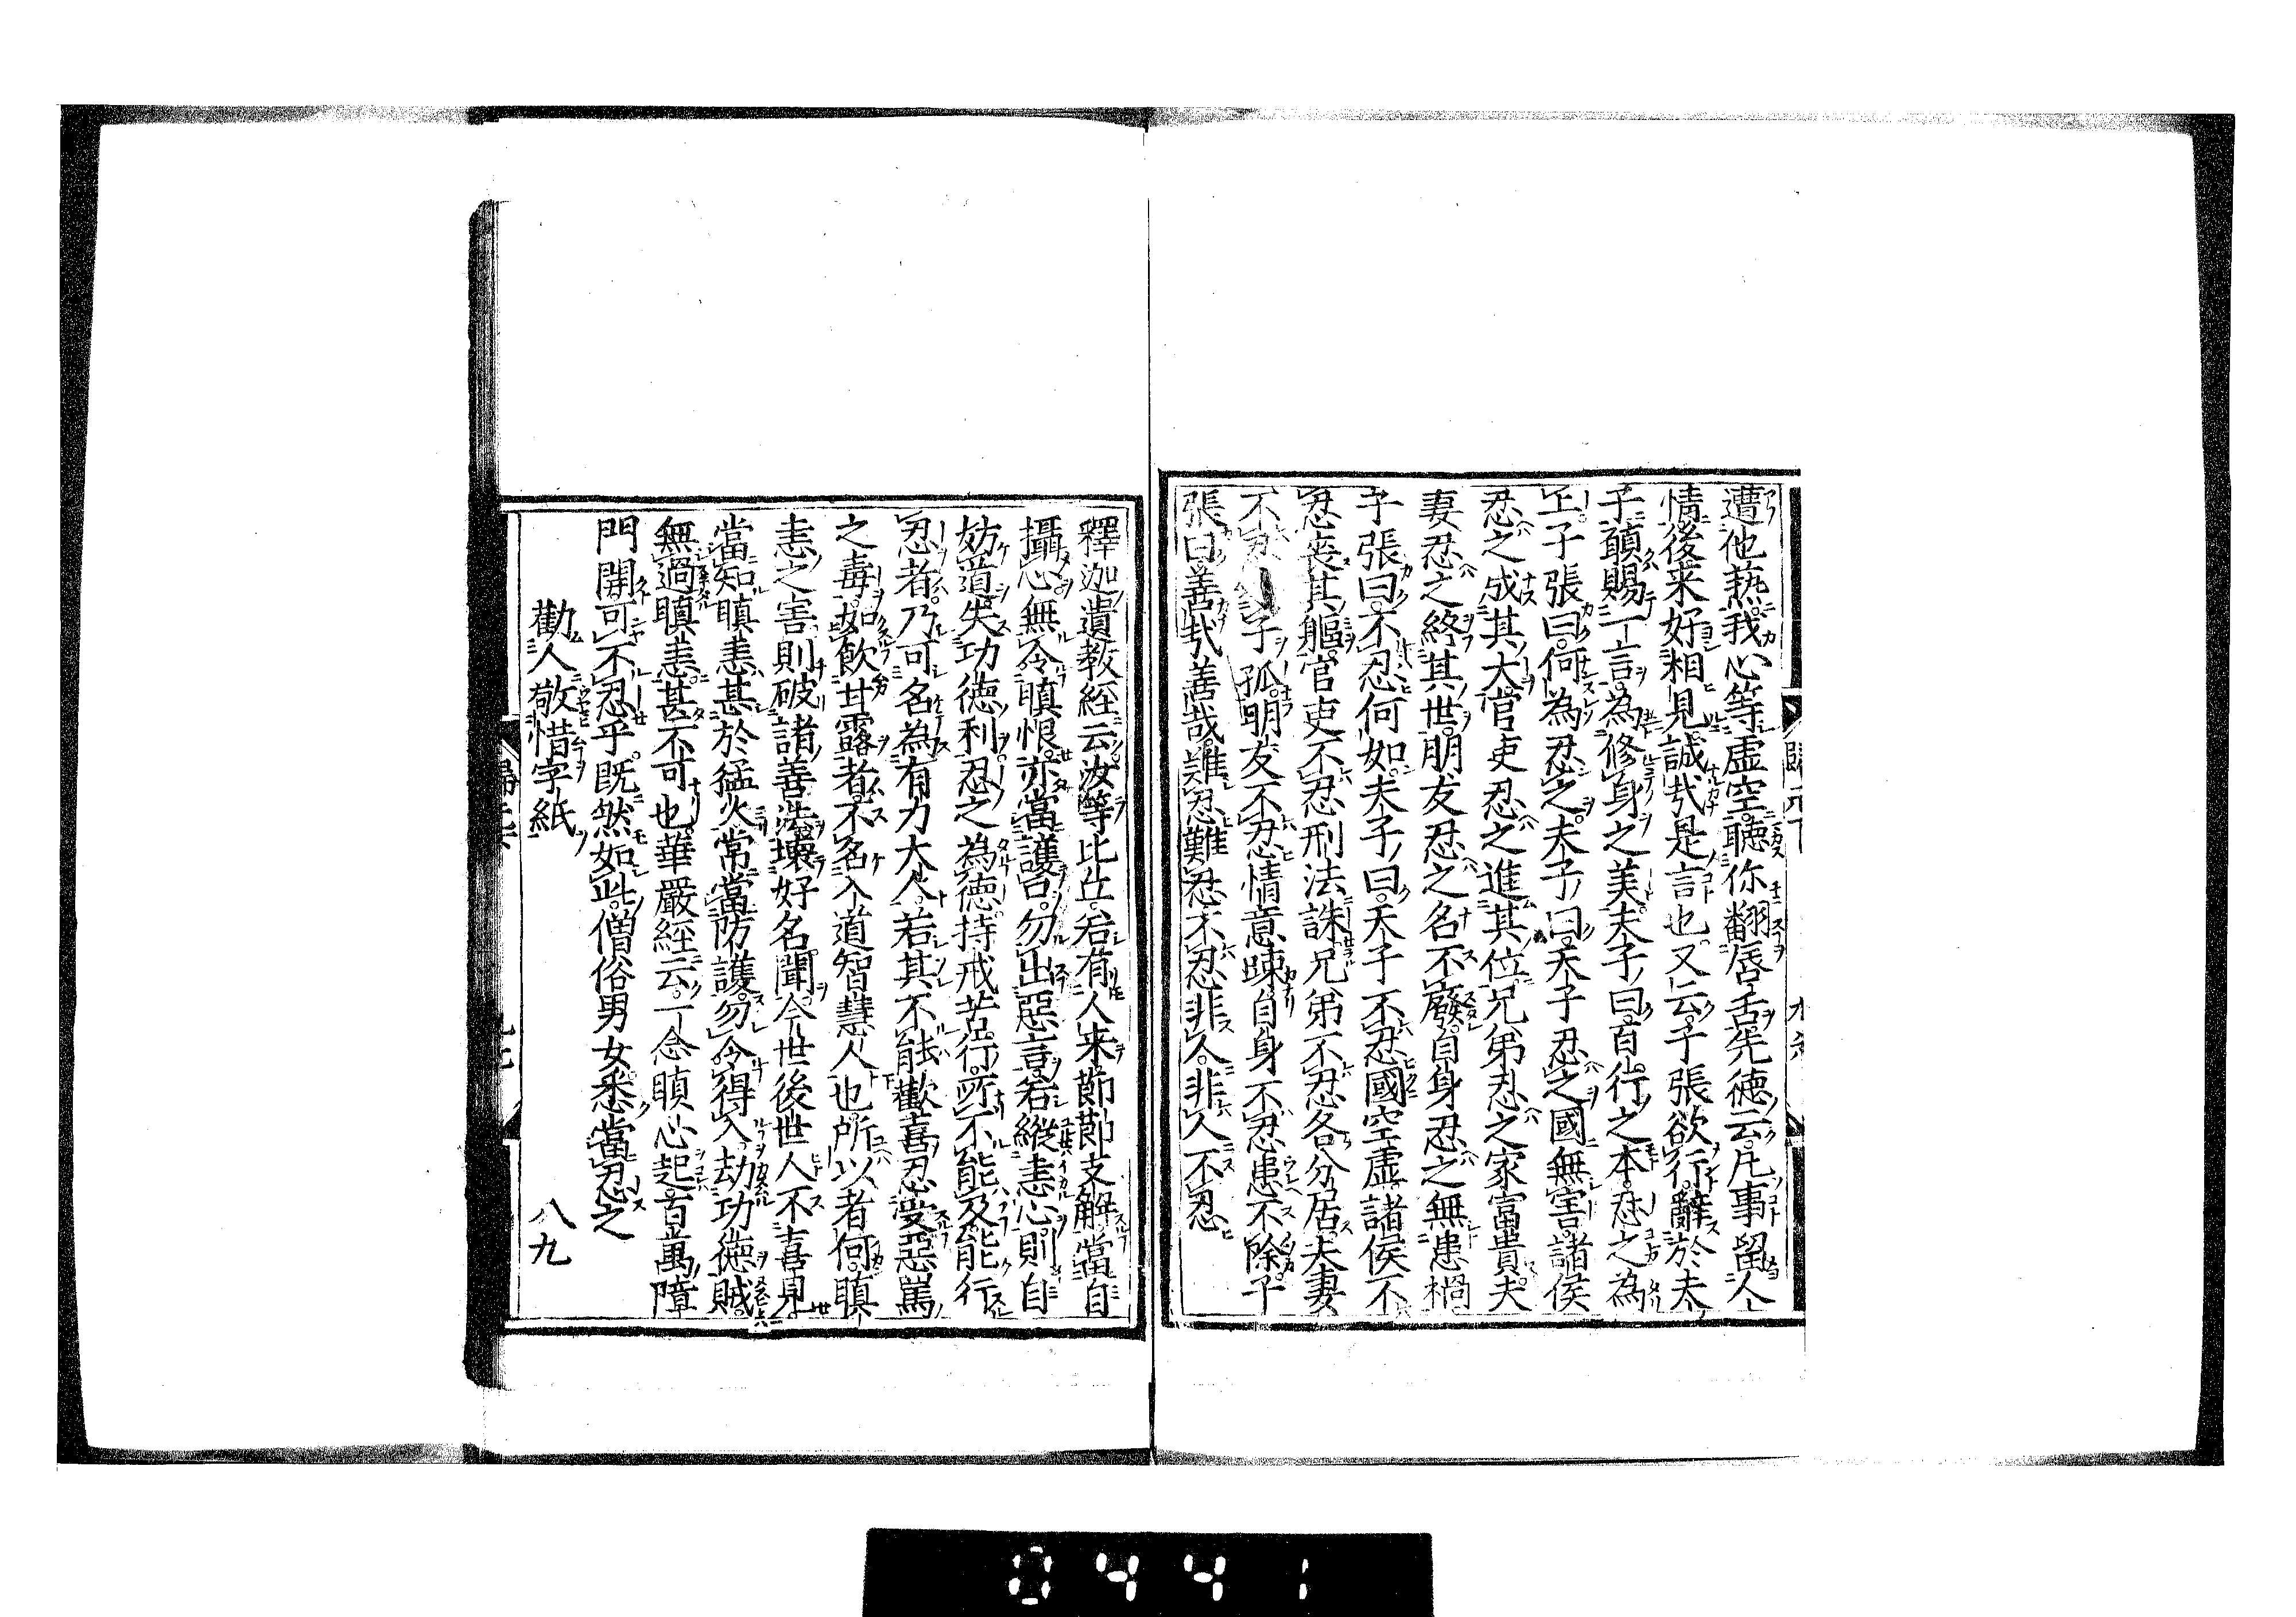 遭他爇我心等虛空聽你翻唇舌先德云凡事留人
情後来好相見誠㢤是言也又云子張欲行辭於夫
子願賜一言為修身之美夫子曰百行之本忍之為
上子張曰何為忍之夫子曰天子忍之國無害諸侯
忍之成其大官吏忍之進其位兄弟忍之家富貴夫
妻忍之終其世朋友忍之名不廢自身忍之無患禍
子張曰不忍何如夫子曰天子不忍國空虛諸侯不
忍喪其軀官吏不忍刑法誅兄弟不忍各分居夫妻
不忍子孤朋友不忍情意踈自身不忍患不除子
張曰善㢤善哉難忍難忍不忍非人非人不忍
釋迦遺教経云汝等比丘若有人来節節支解當自
攝心無令瞋恨亦當護口勿出惡言若縱恚心則自
妨道失功德利忍之為徳持戒苦行所不能及能行
忍者乃可名為有力大人若其不能歡喜忍受惡罵
之毒如飲甘露者不名入道智慧人也所以者何瞋
恚之害則破諸善法壞好名聞今世後世人不喜見
當知瞋恚甚於猛火常當防護勿令得入劫功德賊
無過瞋恚甚不可也華嚴経云一念瞋心起百萬障
門開可不忍乎既然如此僧俗男女悉當忍之
勸人敬惜字紙
八九
0441